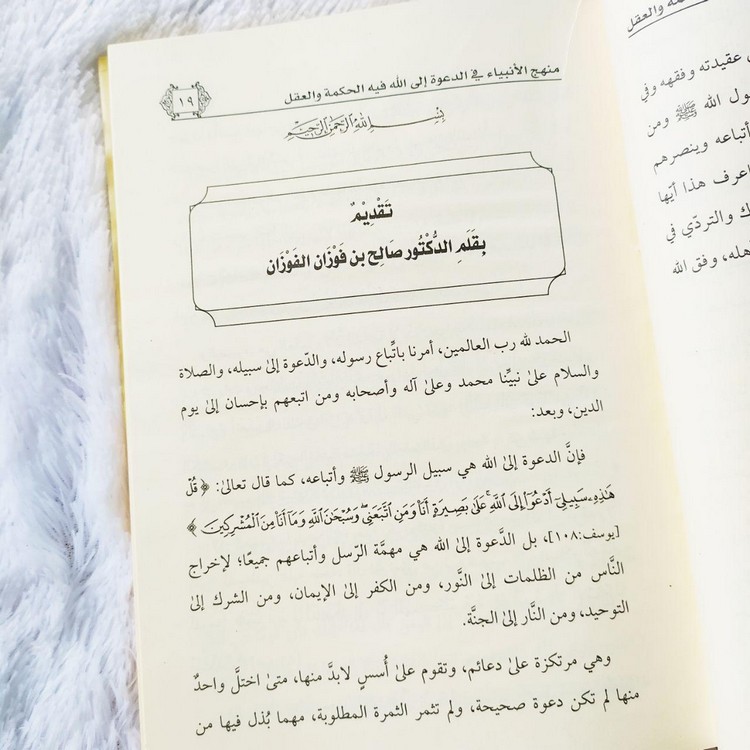 منهج الأنبياء في الدعوة إلى الله فيه الحكمة والعقل
١٩
بِسْمِ اللَّهِ الرَّحْمَنِ الرَّحِيمِ
تَقْدِيْمٌ
بِقَلَمِ الدُّكْتُور صَالِح بن فَوْزَان الفَوْزَان
الحمد لله رب العالمين، أمرنا باتِّباع رسوله، والدّعوة إلىٰ سبيله، والصلاة
والسلام علىٰ نبيِّنا محمد وعلىٰ آله وأصحابه ومن اتبعهم بإحسان إلىٰ يوم
الدين، وبعد:
فإنَّ الدعوة إلىٰ الله هي سبيل الرسول ﷺ وأتباعه، كما قال تعالىٰ: ﴿قُلْ
هَذِهِ سَبِيلِي أَدْعُو إِلَى اللَّهِ عَلَى بَصِيرَةٍ أَنَا وَمَنِ اتَّبَعَنِي وَسُبْحَانَ اللَّهِ وَمَا أَنَا مِنَ الْمُشْرِكِينَ﴾
[يوسف:١٠٨]، بل الدَّعوة إلىٰ الله هي مهمَّة الرّسل وأتباعهم جميعًا؛ لإخراج
النَّاس من الظلمات إلىٰ النُّور، ومن الكفر إلىٰ الإيمان، ومن الشرك إلىٰ
التوحيد، ومن النَّار إلىٰ الجنَّة.
وهي مرتكزة علىٰ دعائم، وتقوم علىٰ أُسسٍ لابدَّ منها، متىٰ اختلَّ واحدٌ
منها لم تكن دعوة صحيحة، ولم تثمر الثمرة المطلوبة، مهما بُذل فيها من
والعقل
عقيدته وفقهه وفي
الله ﷺ ومن
أتباعه وينصرهم
هذا أيّها
والتردّي في
وفق الله